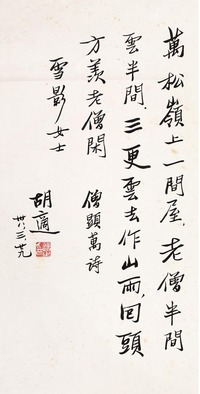 萬松嶺上一間屋，老僧半間
雲半間，三更雲去作山雨，回頭
方羨老僧閑　僧顯萬詩
雪影女士
胡適
卅八，三，廿九